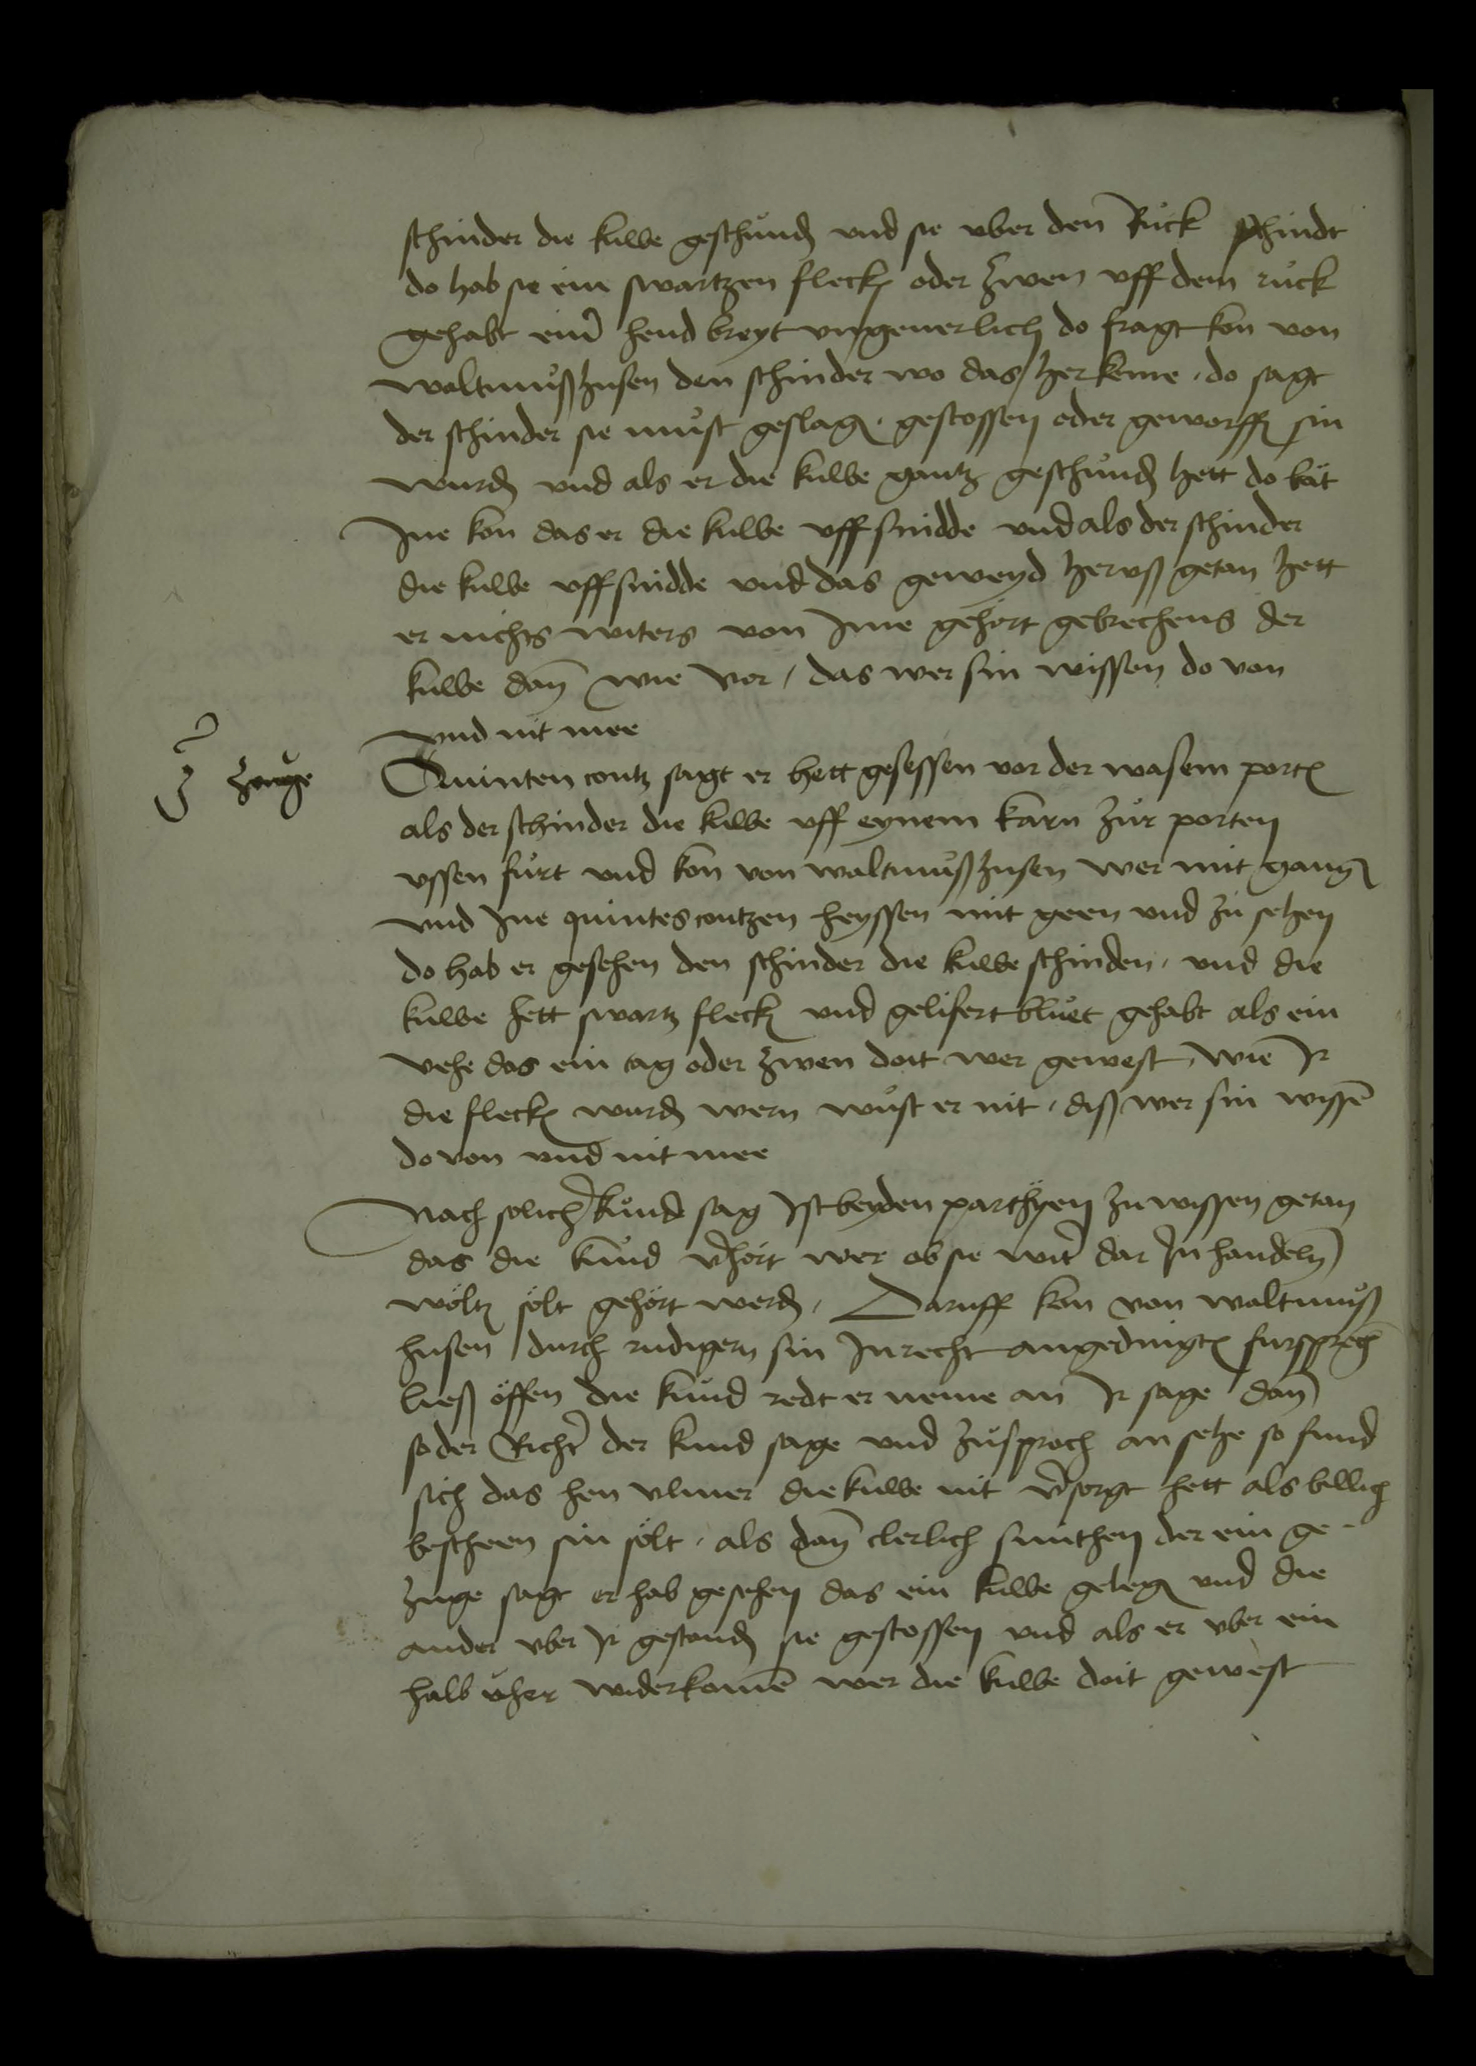 schinder die kuwe geschund und sie uber den Ruck schindt
do hab sie ein swartzen fleck oder zwen uff dem ruck
gehabt einer hend breyt ungeuerlich do fragt kon von
waltmußhusen den schinder wo das herkeme . do sagt
der schinder sie must geslag . gestossen oder geworff sin
wurd und als er die kuwe gantz geschund hett do bat
Ine kon das er die kuwe uff snidde und als der schinder
die kuwe uff snidde und das geweyd heruß getan hett
er nichts witers von Ime gehort gebrechens der
kuwe dan wie vor / das wer sin wissen do von
und nit mee
3 zeuge
Quinten contz sagt er hett gesessen vor der wasem port
als der schinder die kuwe uff eynem karn zur porten
ussen furt und kon von waltmußhusen wer mit gang
und Ine quintes contzen heyssen mit geen und zu sehen
do hab er gesehen den schinder die kuwe schinden . und die
kuwe hett swartz fleck und gelifert bluet gehabt als ein
vehe das ein tag oder zwen doit wer gewest . wie Ir
die fleck wurd wern wust er nit . diß wer sin wissen
do von und nit mee
Nach solicher kunde sag Ist beyden parthyen zu wissen getan
das die kund verhort wer ob sie witer dar In handeln
wolt solt gehort werd . Daruff kon von waltmuß
husen durch rudigern sin Inrecht angedingt fursprech
ließ offen die kund redt er neme an Ir sage dan
so der Richter der kund sage und zusproch an sehe so fund
sich das hen ulmer die kuwe nit versorgt hett als billich
bescheen sin solt . als dan clerlich der ein ge-
zuge sagt er hab gesehen das ein kuwe geleg und die
ander uber Ir gestand sie gestossen und als er uber ein
halb uhrr widerkomen wer die kuwe doit gewest